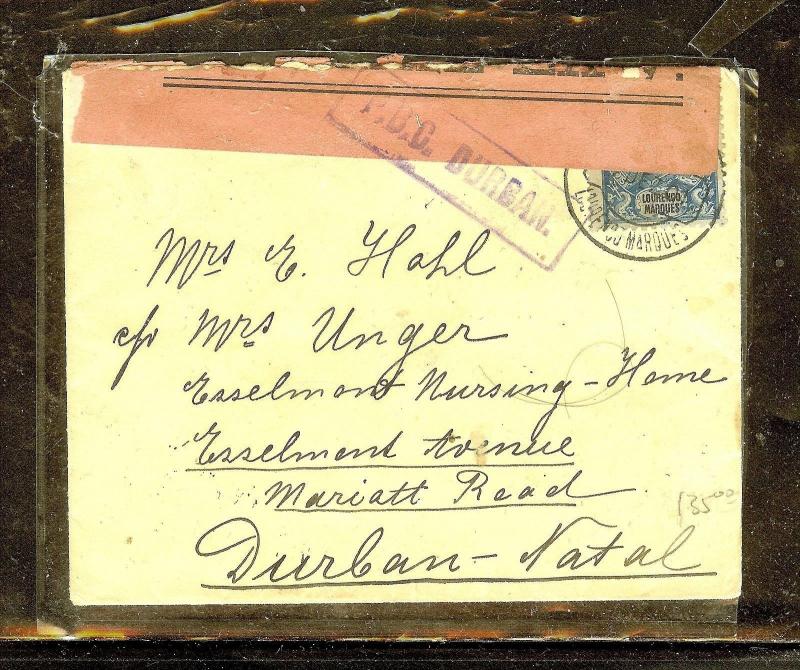 P.B.C. DURBAN.
LOURENÇO
MARQUES
LOURENÇO MARQUES
Mrs E. Hohl
c/o Mrs Unger
Esselmont Nursing-Home
Esselmont Avenue
Mariatt Road
Durban-Natal
135⁰⁰